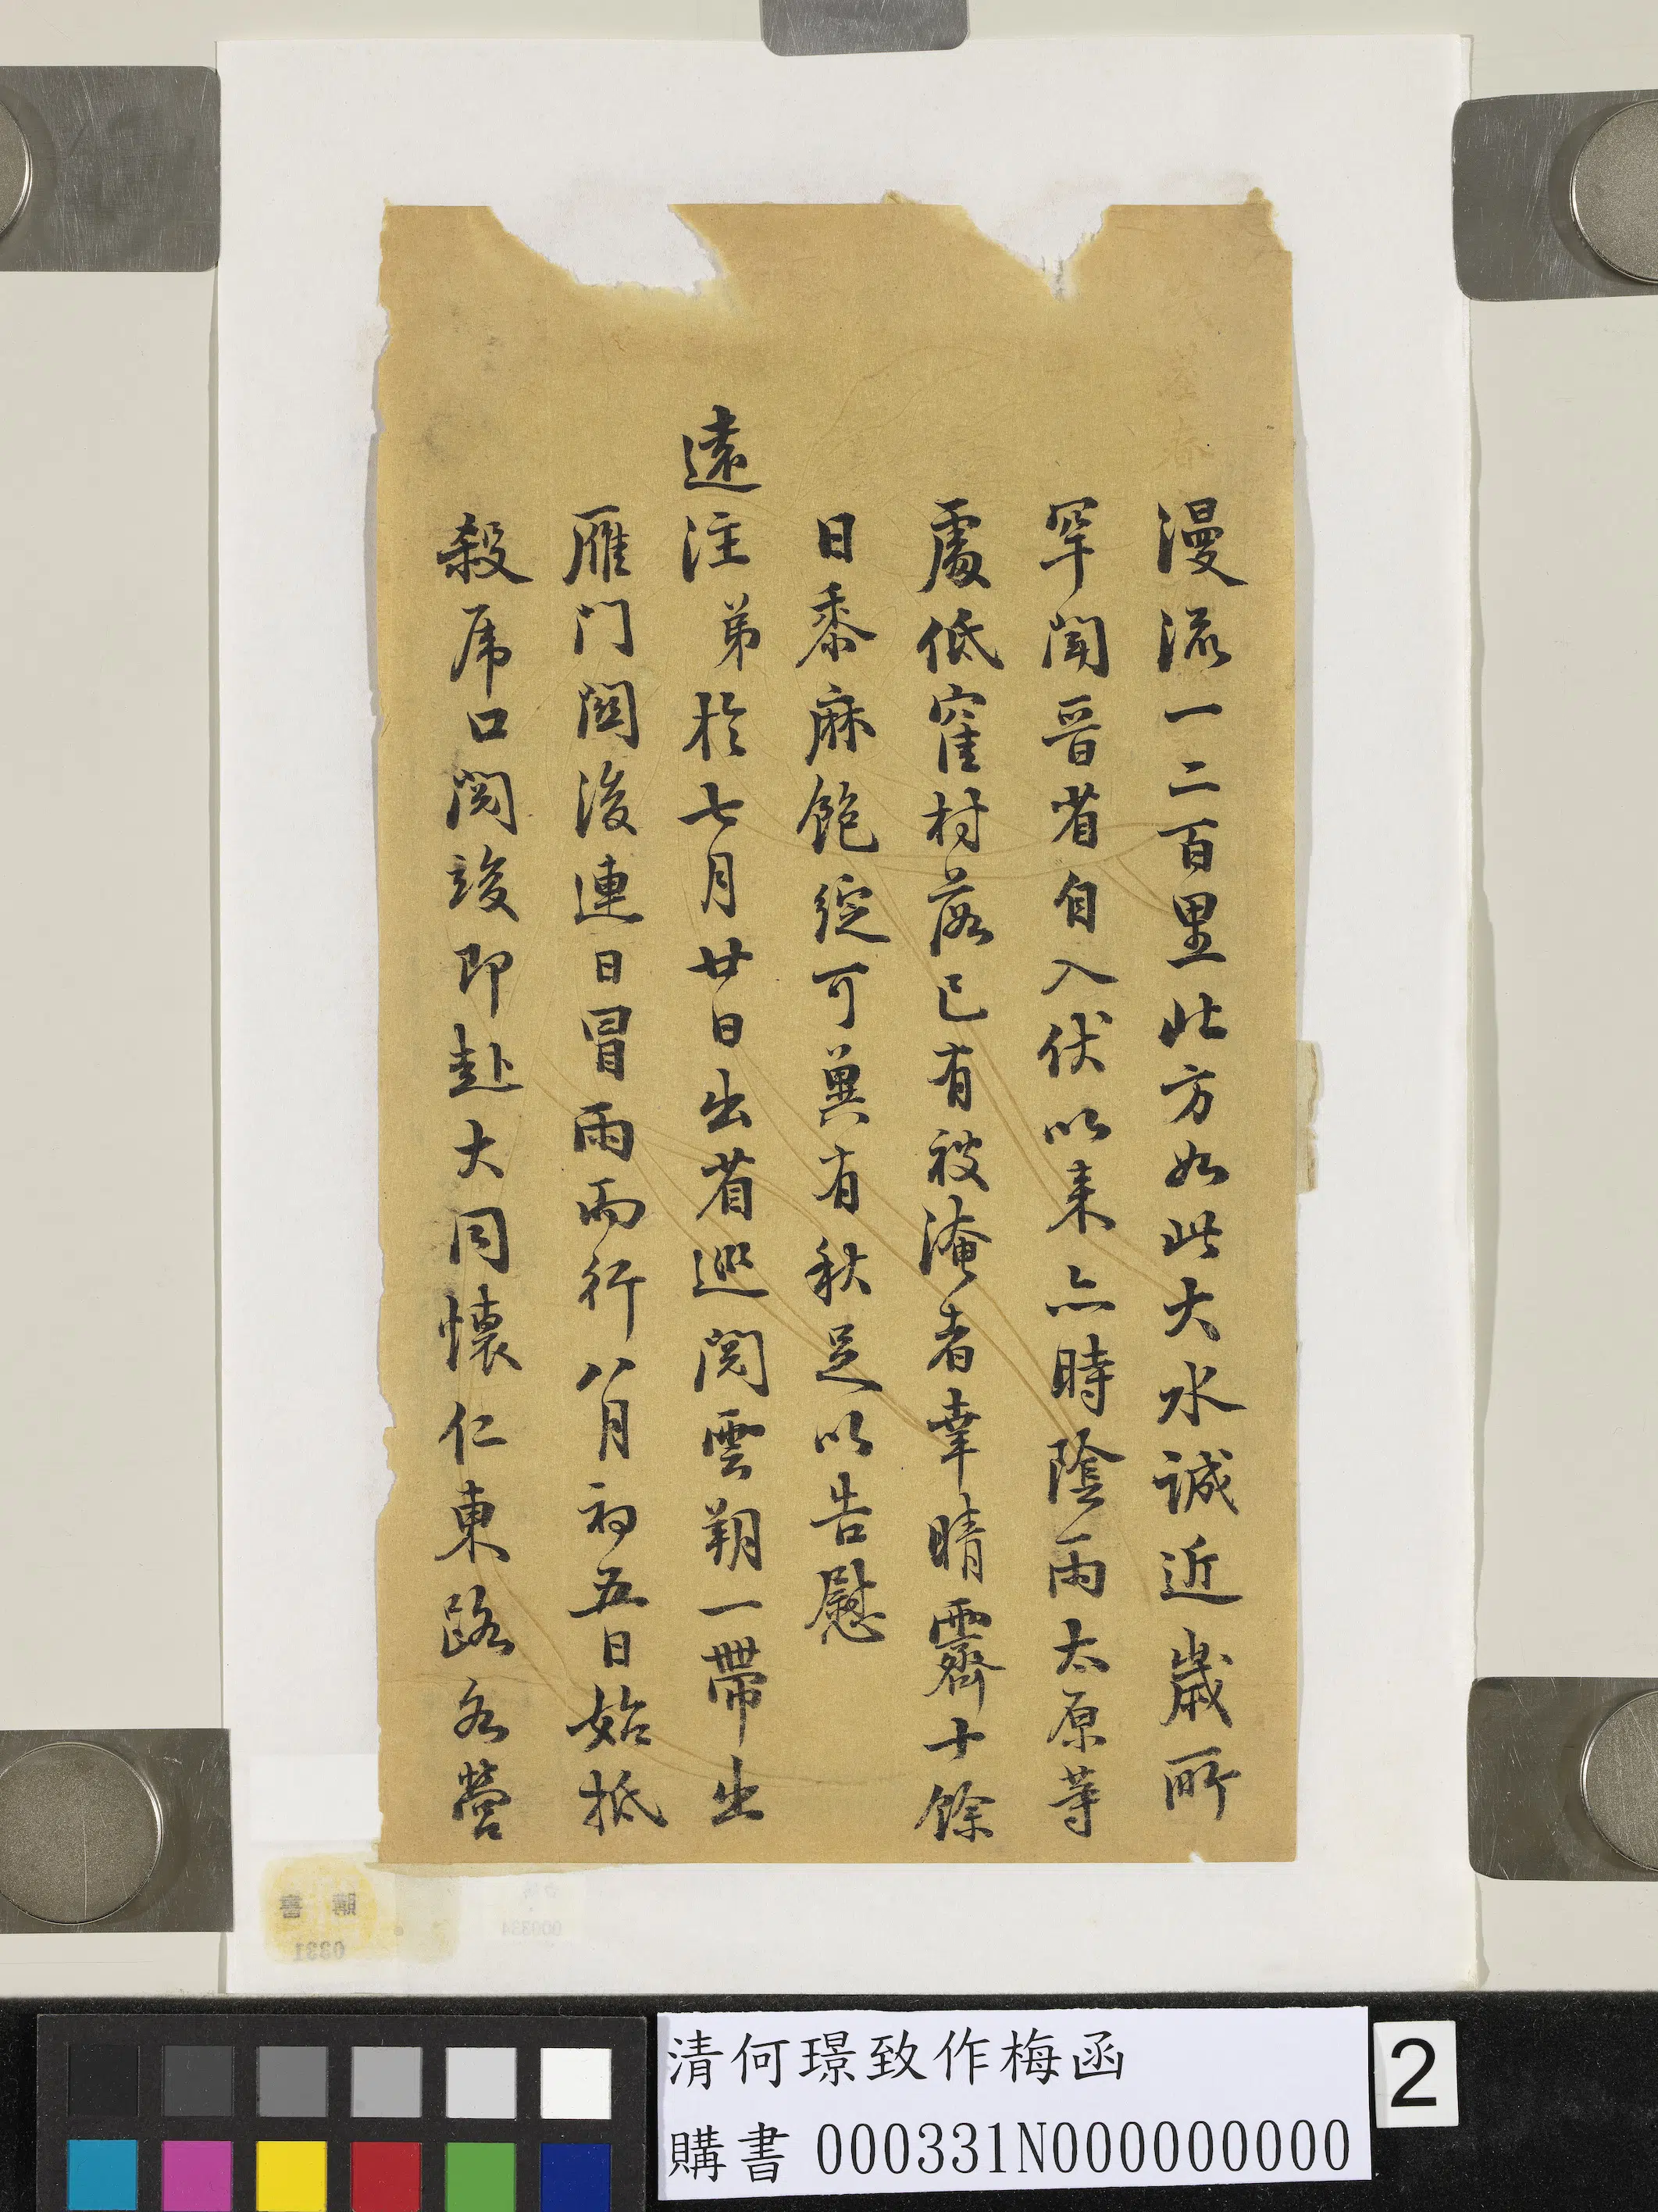 漫流一二百里北方如此大水誠近歲所
罕聞晉省自入伏以來亦時陰雨太原等
處低窪村落已有被淹者幸晴霽十餘
日黍麻飽綻可冀有秋足以告慰
遠注弟於七月廿日出省巡閱雲朔一帶出
雁门關後連日冒雨而行八月初五日始抵
殺虎口閱竣即赴大同懷仁東路各營
購書
0331
清何璟致作梅函
購書 000331N000000000
2